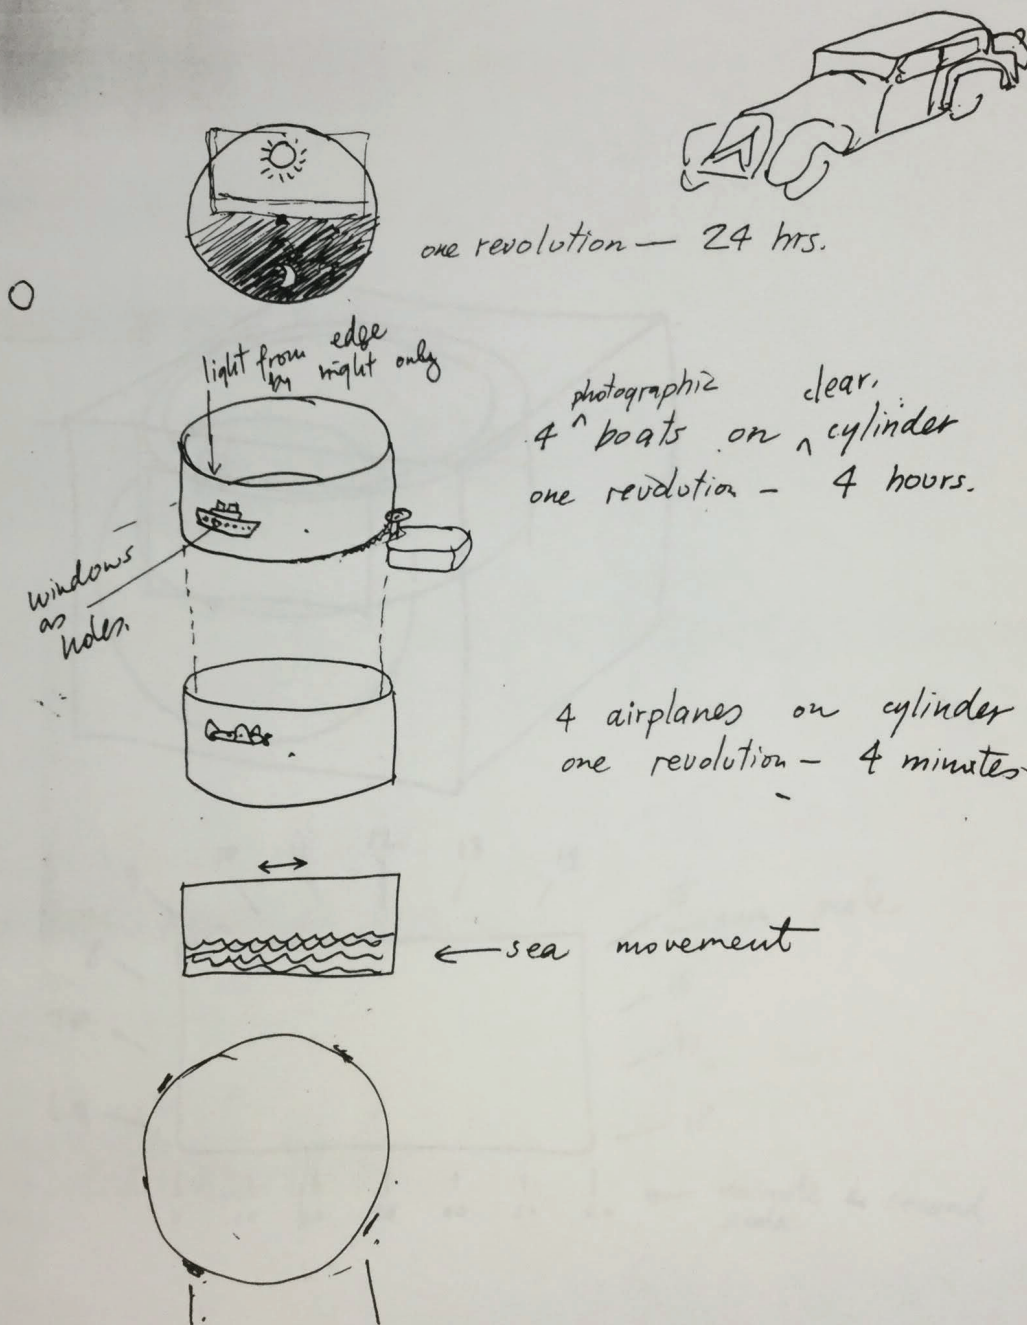 one revolution — 24 hrs.
light from edge
by night only
photographic clear.
4 ^ boats on ^ cylinder
one revolution – 4 hours.
windows
as
holes.
4 airplanes on cylinder
one revolution – 4 minutes
sea movement